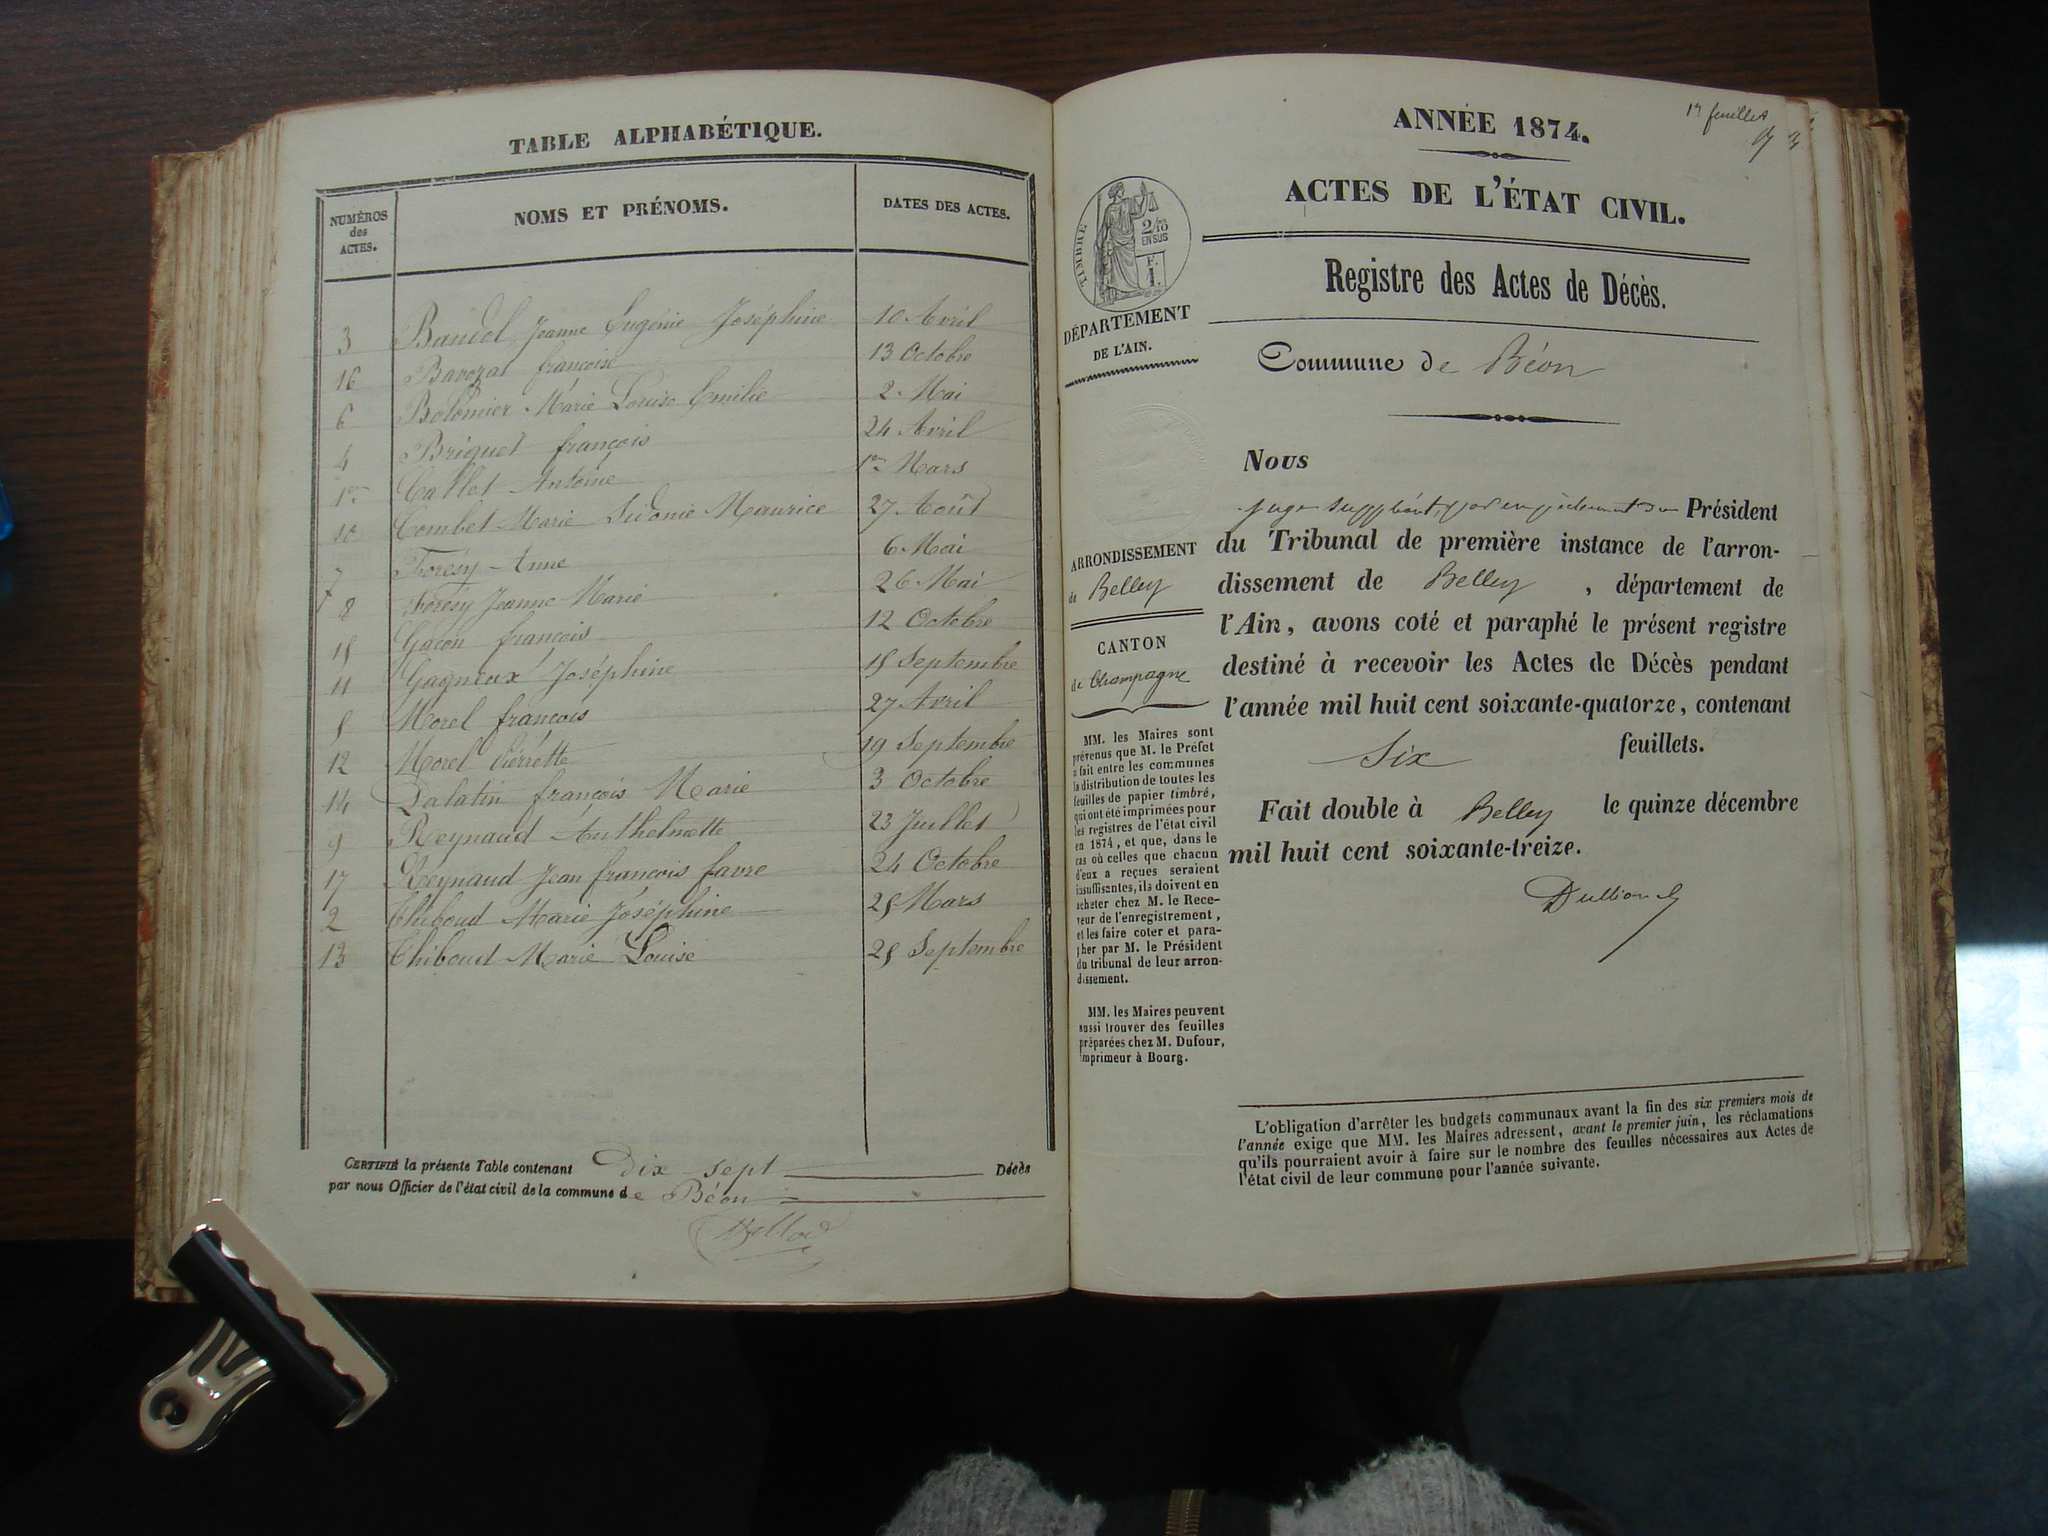 TABLE ALPHABÉTIQUE.
NUMÉROS des ACTES. NOMS ET PRÉNOMS. DATES DES ACTES.
3 Baudel Jeanne Eugénie Joséphine 10 Avril
16 Bavozat françoise 13 Octobre
6 Bolomier Marie Louise Emilie 2 Mai
4 Briquet françois 24 Avril
1er Callet Antoine 1er Mars
10 Combet Marie Sidonie Maurice 27 Août
7 Forésy Anne 6 Mai
8 Forésy Jeanne Marie 26 Mai
15 Gacon françois 12 Octobre
11 Gagneux Joséphine 15 Septembre
5 Morel françois 27 Avril
12 Morel Pierrette 19 Septembre
14 Palatin françois Marie 3 Octobre
9 Reynaud Anthelmette 23 Juillet
17 Reynaud Jean françois favre 24 Octobre
2 Thiboud Marie Joséphine 25 Mars
13 Thiboud Marie Louise 25 Septembre
CERTIFIÉ la présente Table contenant Dix-sept Décès
par nous Officier de l'état civil de la commune de Béon
17 feuillets
ANNÉE 1874.
ACTES DE L'ÉTAT CIVIL.
TIMBRE
2/10
EN SUS
F.
1.
DÉPARTEMENT
DE L'AIN.
Registre des Actes de Décès.
Commune de Béon
ARRONDISSEMENT
de Belley
CANTON
de Champagne
MM. les Maires sont
prévenus que M. le Préfet
a fait entre les communes
la distribution de toutes les
feuilles de papier timbré,
qui ont été imprimées pour
les registres de l'état civil
en 1874, et que, dans le
cas où celles que chacun
d'eux a reçues seraient
insuffisantes, ils doivent en
acheter chez M. le Rece-
veur de l'enregistrement,
et les faire coter et para-
pher par M. le Président
du tribunal de leur arron-
dissement.
MM. les Maires peuvent
aussi trouver des feuilles
préparées chez M. Dufour,
imprimeur à Bourg.
Nous
juge suppléant, par empêchement du Président
du Tribunal de première instance de l'arron-
dissement de Belley, département de
l'Ain, avons coté et paraphé le présent registre
destiné à recevoir les Actes de Décès pendant
l'année mil huit cent soixante-quatorze, contenant
Six feuillets.
Fait double à Belley le quinze décembre
mil huit cent soixante-treize.
L'obligation d'arrêter les budgets communaux avant la fin des six premiers mois de
l'année exige que MM. les Maires adressent, avant le premier juin, les réclamations
qu'ils pourraient avoir à faire sur le nombre des feuilles nécessaires aux Actes de
l'état civil de leur commune pour l'année suivante.